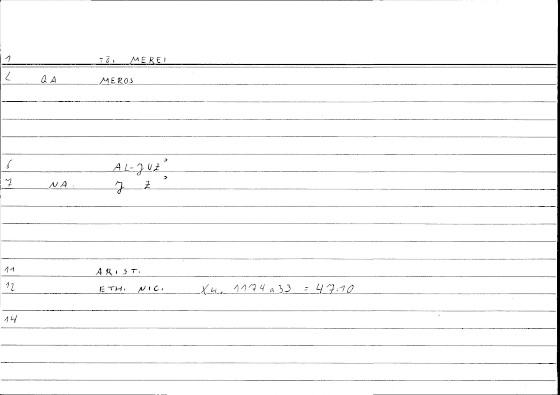 1 TŌI MEREI
2 QA MEROS
6 AL-ǦUZʾ
7 NA. Ǧ Z ʾ
11 ARIST.
12 ETH. NIC. X4, 1174a33 = 47.10
14